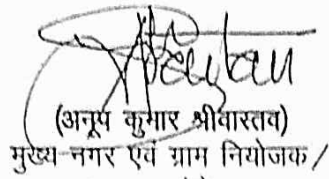 (अनूप कुमार श्रीवास्तव)
मुख्य नगर एवं ग्राम नियोजक/